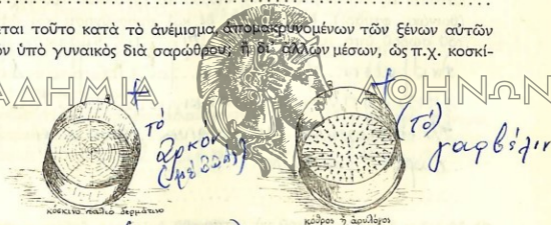 εται τοῦτο κατὰ τὸ ἀνέμισμα, ἀπομακρυνομένων τῶν ξένων αὐτῶν
ὑπὸ γυναικὸς διὰ σαρώθρου; ἢ δι' ἄλλων μέσων, ὡς π.χ. κοσκί-
ΑΔΗΜΙΑ ΑΘΗΝΩΝ
τό
(τό)
γαρβέλιν
κόσκινο παλιὸ δερμάτινο
ἢ ἀριλόγος